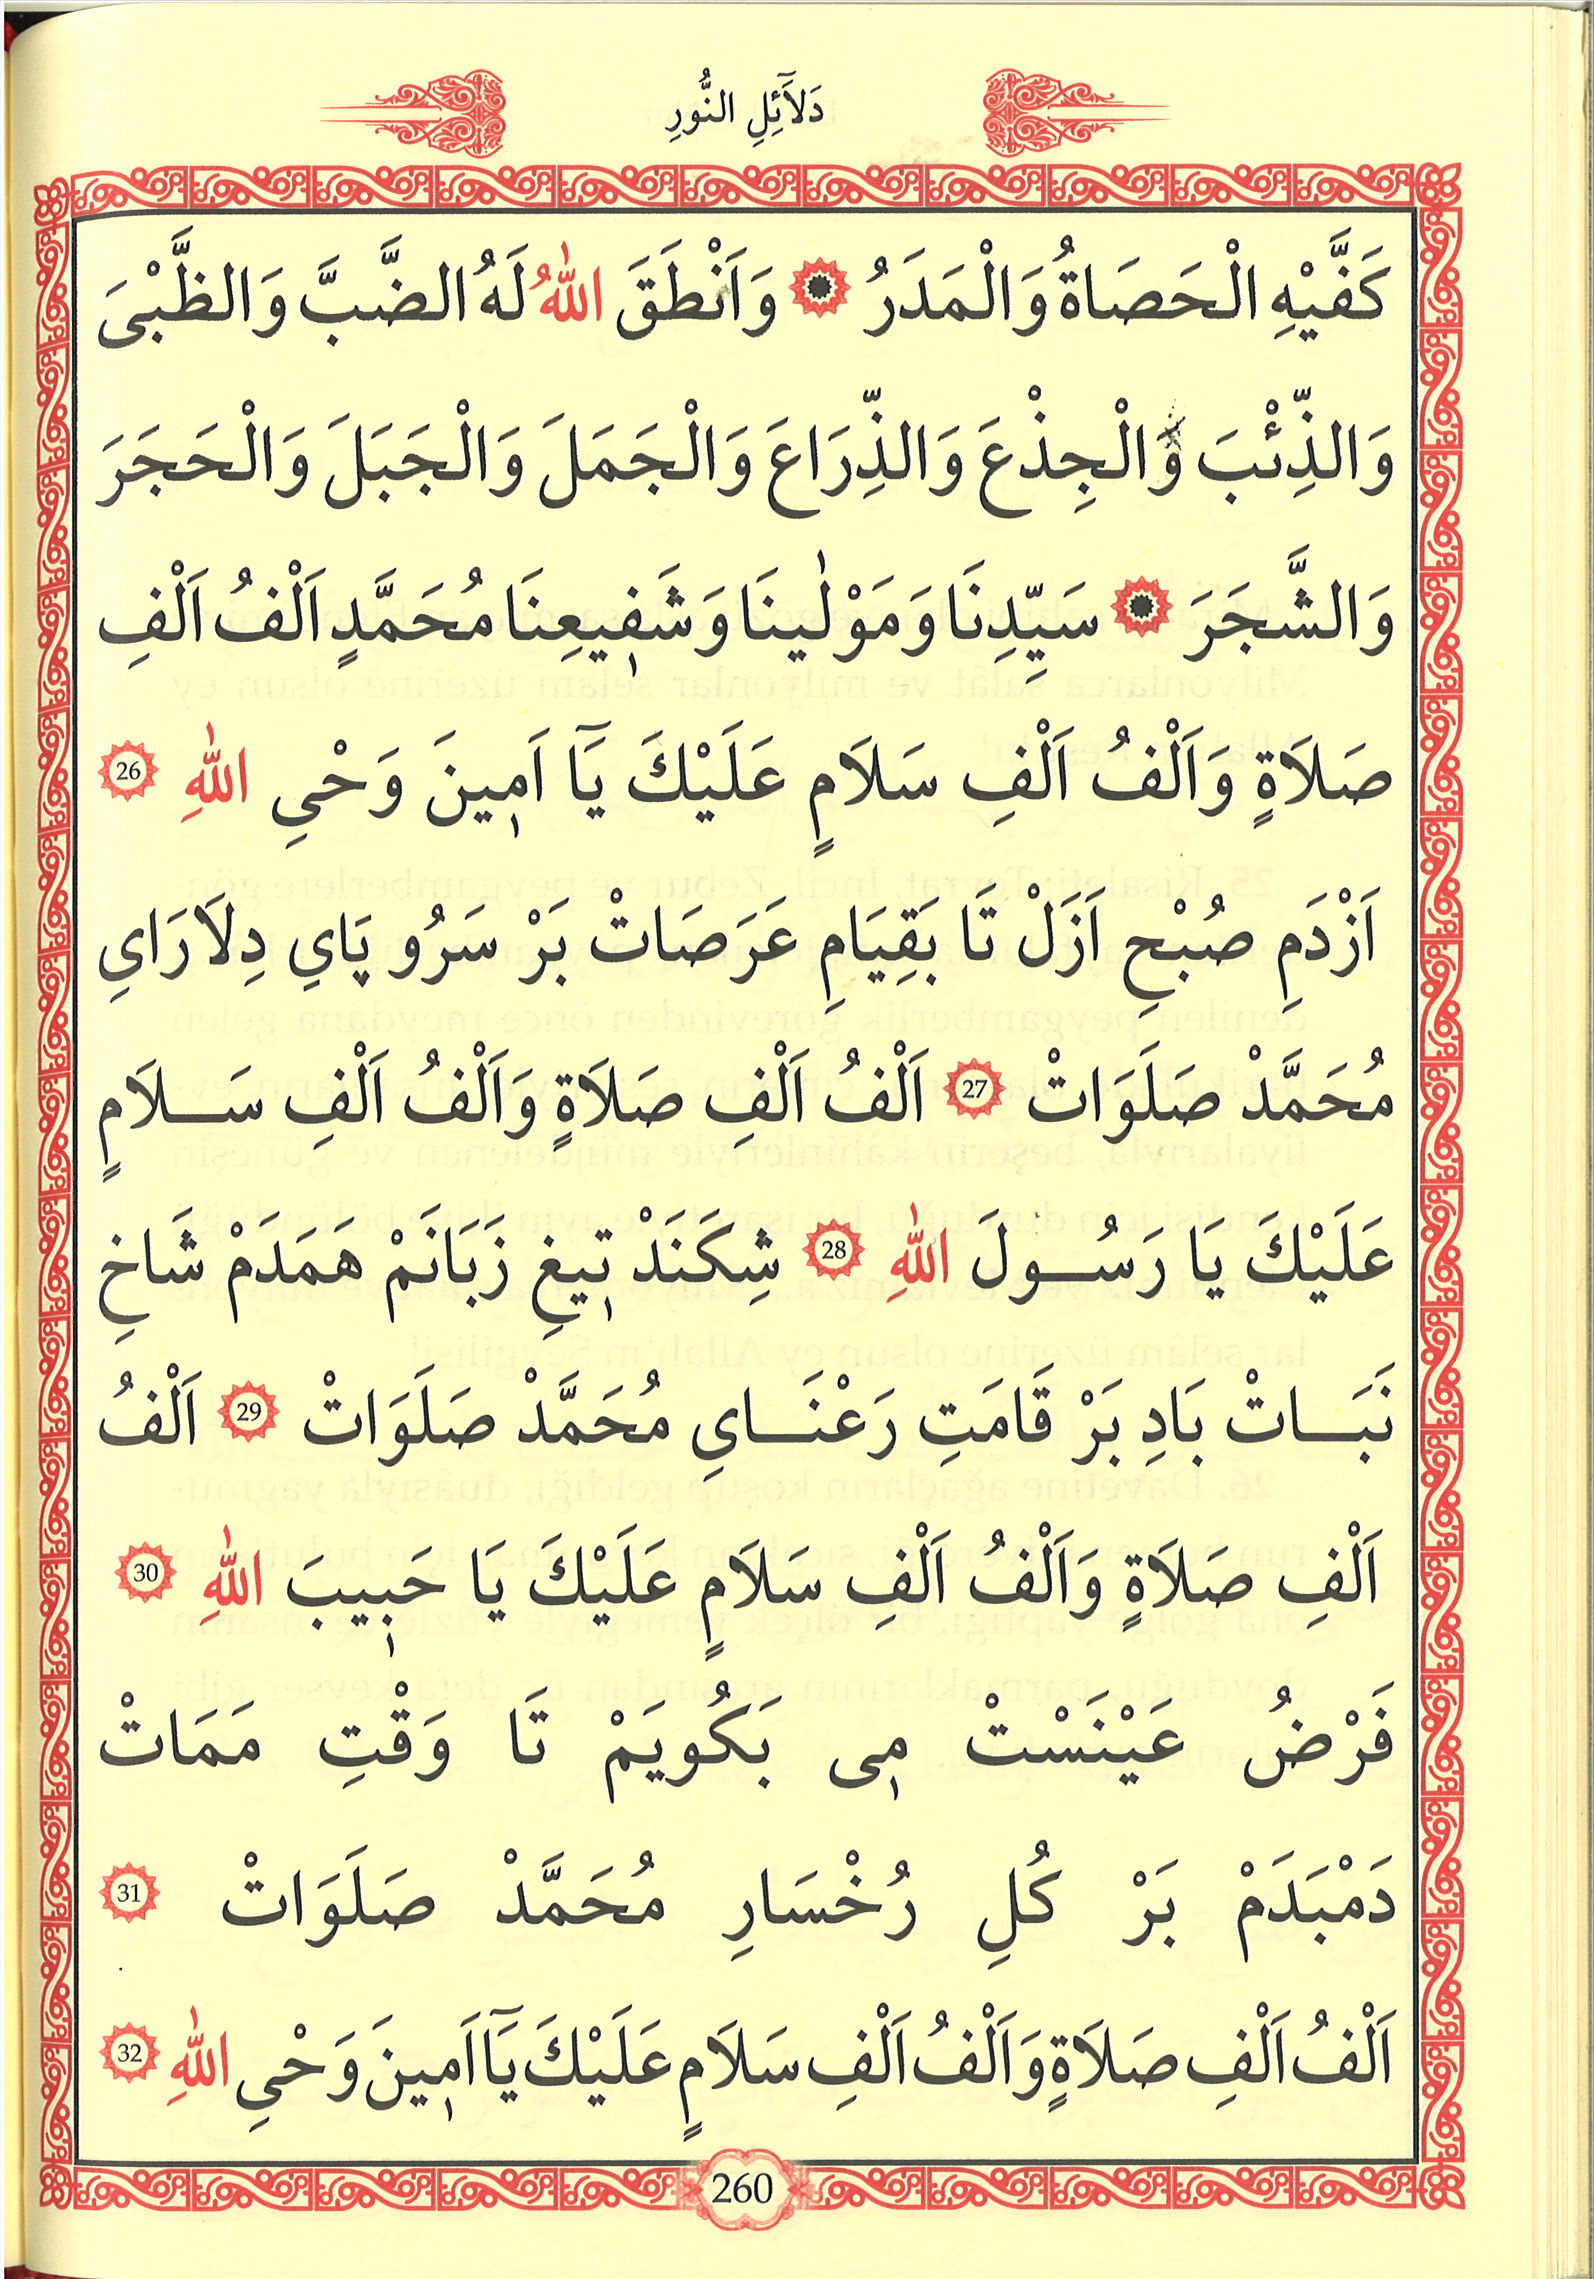 دَلَٓائِلِ النُّورِ
كَفَّيْهِ الْحَصَاةُ وَالْمَدَرُ ۞ وَاَنْطَقَ اللّٰهُ لَهُ الضَّبَّ وَالظَّبْىَ
وَالذِّئْبَ وَالْجِذْعَ وَالذِّرَاعَ وَالْجَمَلَ وَالْجَبَلَ وَالْحَجَرَ
وَالشَّجَرَ ۞ سَيِّدِنَا وَمَوْلٰينَا وَشَفٖيعِنَا مُحَمَّدٍ اَلْفُ اَلْفِ
صَلَاةٍ وَاَلْفُ اَلْفِ سَلَامٍ عَلَيْكَ يَٓا اَمٖينَ وَحْيِ اللّٰهِ 26
اَزْدَمِ صُبْحِ اَزَلْ تَا بَقِيَامِ عَرَصَاتْ بَرْ سَرُو پَايِ دِلَارَايِ
مُحَمَّدْ صَلَوَاتْ 27 اَلْفُ اَلْفِ صَلَاةٍ وَاَلْفُ اَلْفِ سَلَامٍ
عَلَيْكَ يَا رَسُولَ اللّٰهِ 28 شِكَنَدْ تٖيغِ زَبَانَمْ هَمَدَمْ شَاخِ
نَبَاتْ بَادِ بَرْ قَامَتِ رَعْنَايِ مُحَمَّدْ صَلَوَاتْ 29 اَلْفُ
اَلْفِ صَلَاةٍ وَاَلْفُ اَلْفِ سَلَامٍ عَلَيْكَ يَا حَبٖيبَ اللّٰهِ 30
فَرْضُ عَيْنَسْتْ مٖى بَكُويَمْ تَا وَقْتِ مَمَاتْ
دَمْبَدَمْ بَرْ كُلِ رُخْسَارِ مُحَمَّدْ صَلَوَاتْ 31
اَلْفُ اَلْفِ صَلَاةٍ وَاَلْفُ اَلْفِ سَلَامٍ عَلَيْكَ يَٓا اَمٖينَ وَحْيِ اللّٰهِ 32
260